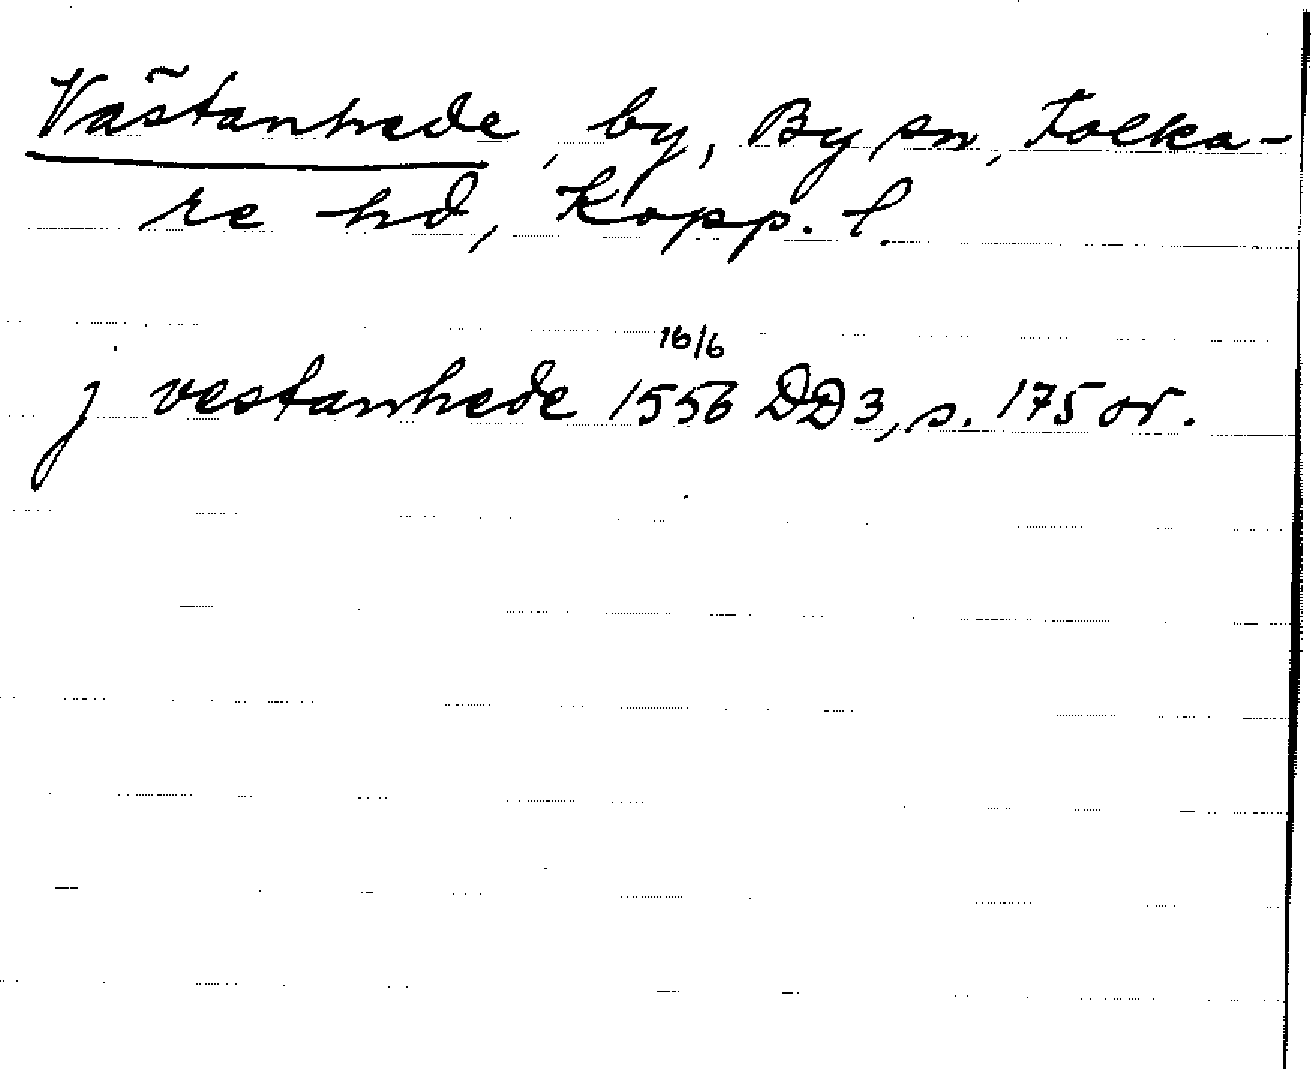 Västanhede, by, By sn, Folka-
re hd, Kopp. l.
16/6
j vestanhede 1556 DD3, s. 175 or.